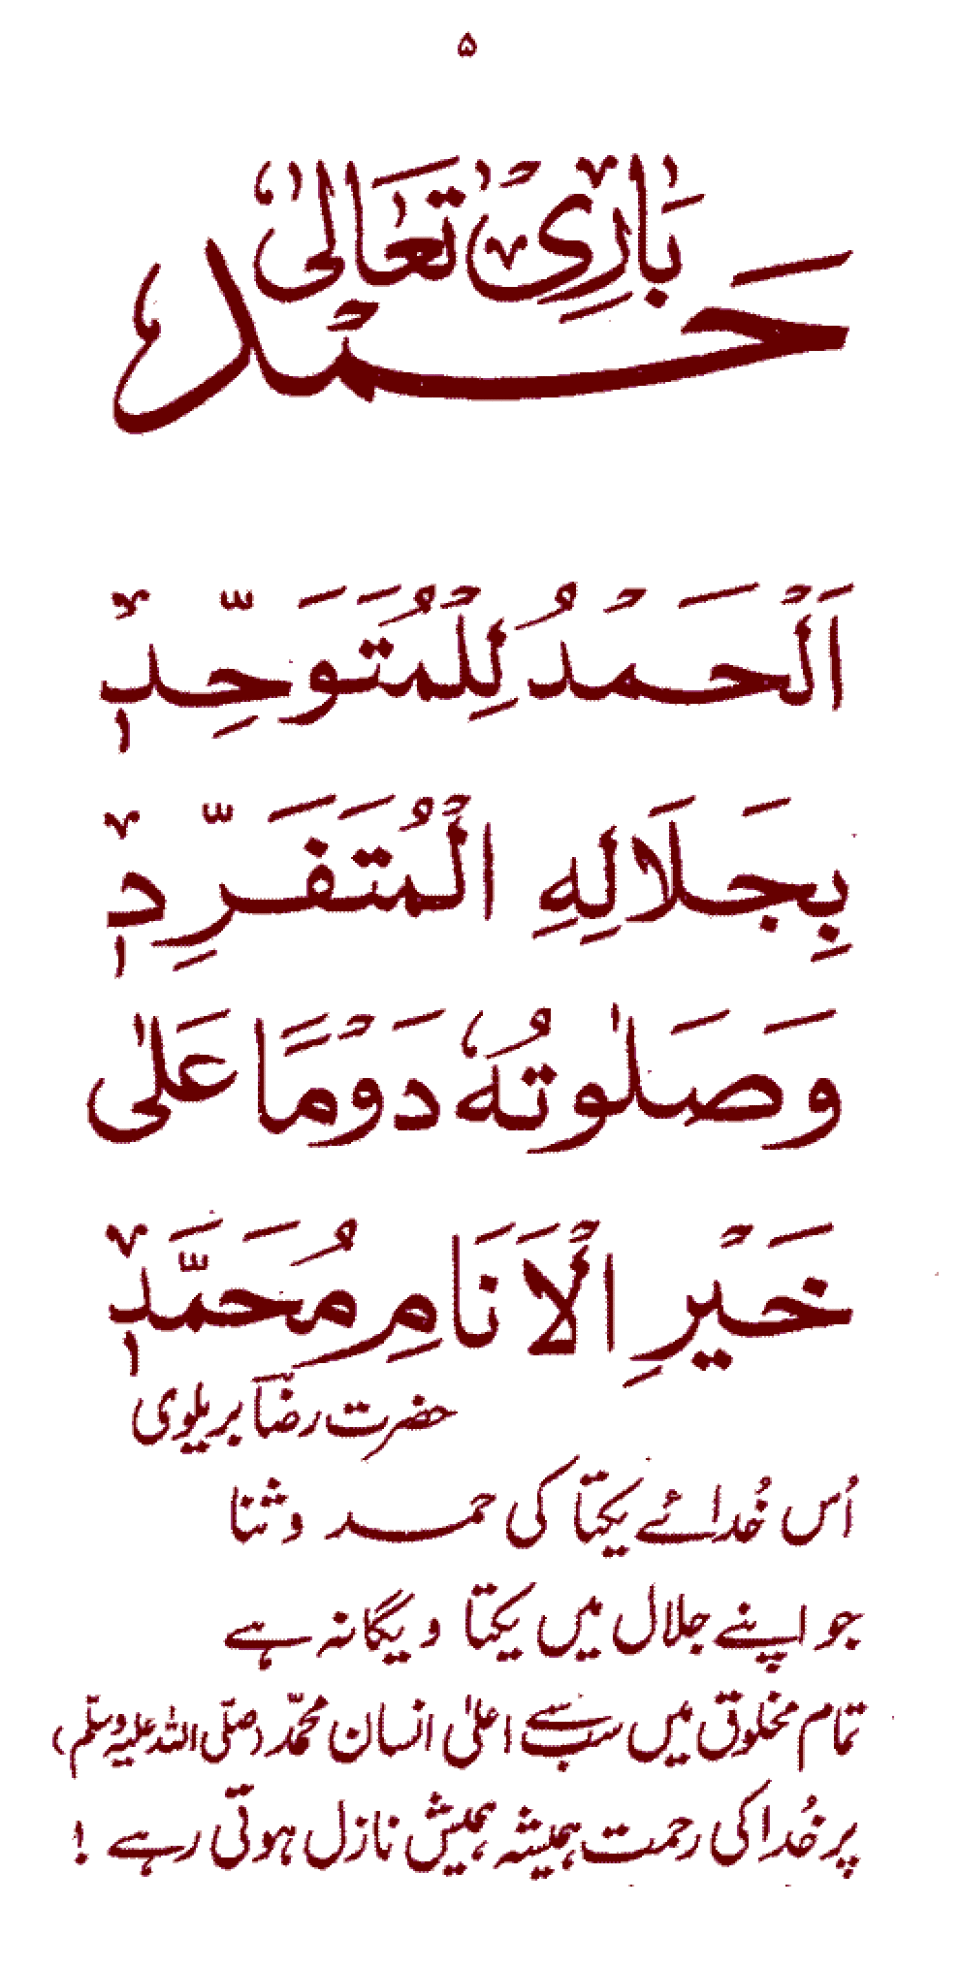 ۵
حَمْد بَارِیْ تَعَالیٰ
اَلْحَمْدُ لِلْمُتَوَحِّدٖ
بِجَلَالِهِ الْمُتَفَرِّدٖ
وَصَلٰوتُهٗ دَوْمًا عَلٰی
خَيْرِ الْاَنَامِ مُحَمَّدٖ
حضرت رضؔا بریلوی
اُس خُدائے یکتا کی حمد و ثنا
جو اپنے جلال میں یکتا و یگانہ ہے
تمام مخلوق میں سب سے اعلیٰ انسان محمّد (صلّی اللہ علیہ وسلّم)
پر خُدا کی رحمت ہمیشہ ہمیش نازل ہوتی رہے !